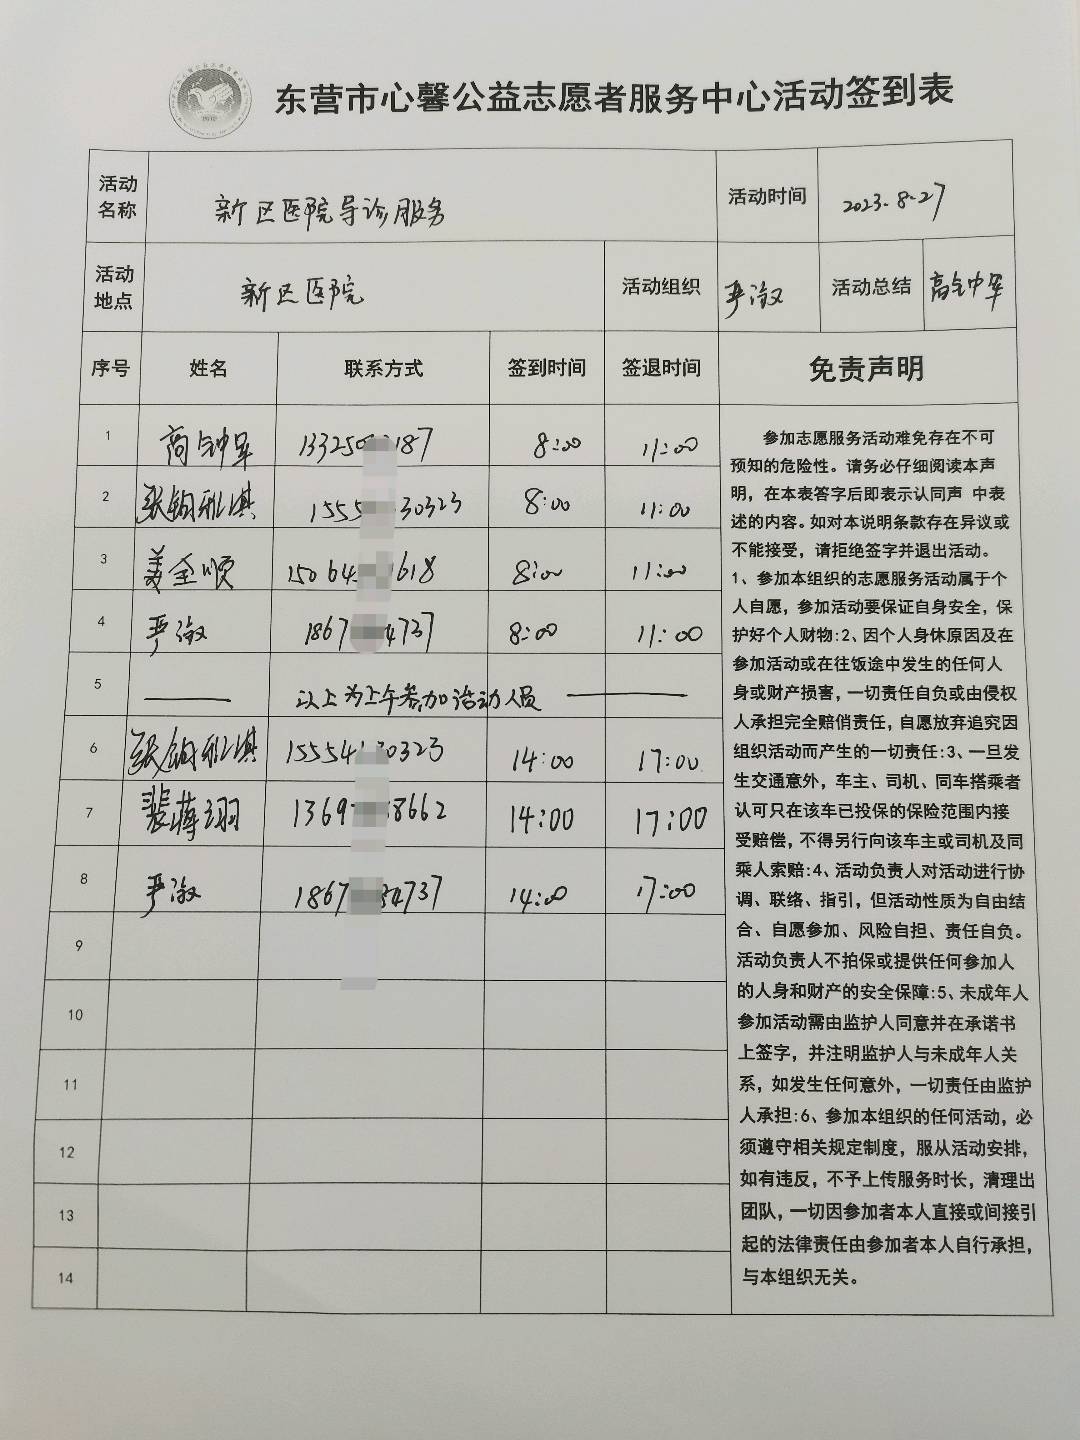 东营市心馨公益志愿者服务中心活动签到表
活动名称 新区医院导诊服务 活动时间 2023-8-27
活动地点 新区医院 活动组织 严淑 活动总结
序号 姓名 联系方式 签到时间 签退时间 免责声明
1 8:00 11:00
2 8:00 11:00
3 姜全顺 8:00 11:00
4 严淑 8:00 11:00
5 以上为上午参加活动人员
6 14:00 17:00
7 14:00 17:00
8 严淑 14:00 17:00
9
10
11
12
13
14
参加志愿服务活动难免存在不可
预知的危险性。请务必仔细阅读本声
明，在本表答字后即表示认同声 中表
述的内容。如对本说明条款存在异议或
不能接受，请拒绝签字并退出活动。
1、参加本组织的志愿服务活动属于个
人自愿，参加活动要保证自身安全，保
护好个人财物:2、因个人身休原因及在
参加活动或在往饭途中发生的任何人
身或财产损害，一切责任自负或由侵权
人承担完全赔俏责任，自愿放弃追究因
组织活动而产生的一切责任:3、一旦发
生交通意外，车主、司机、同车搭乘者
认可只在该车已投保的保险范围内接
受赔偿，不得另行向该车主或司机及同
乘人索赔:4、活动负责人对活动进行协
调、联络、指引，但活动性质为自由结
合、自愿参加、风险自担、责任自负。
活动负责人不拍保或提供任何参加人
的人身和财产的安全保障:5、未成年人
参加活动需由监护人同意并在承诺书
上签字，并注明监护人与未成年人关
系，如发生任何意外，一切责任由监护
人承担:6、参加本组织的任何活动，必
须遵守相关规定制度，服从活动安排，
如有违反，不予上传服务时长，清理出
团队，一切因参加者本人直接或间接引
起的法律责任由参加者本人自行承担，
与本组织无关。